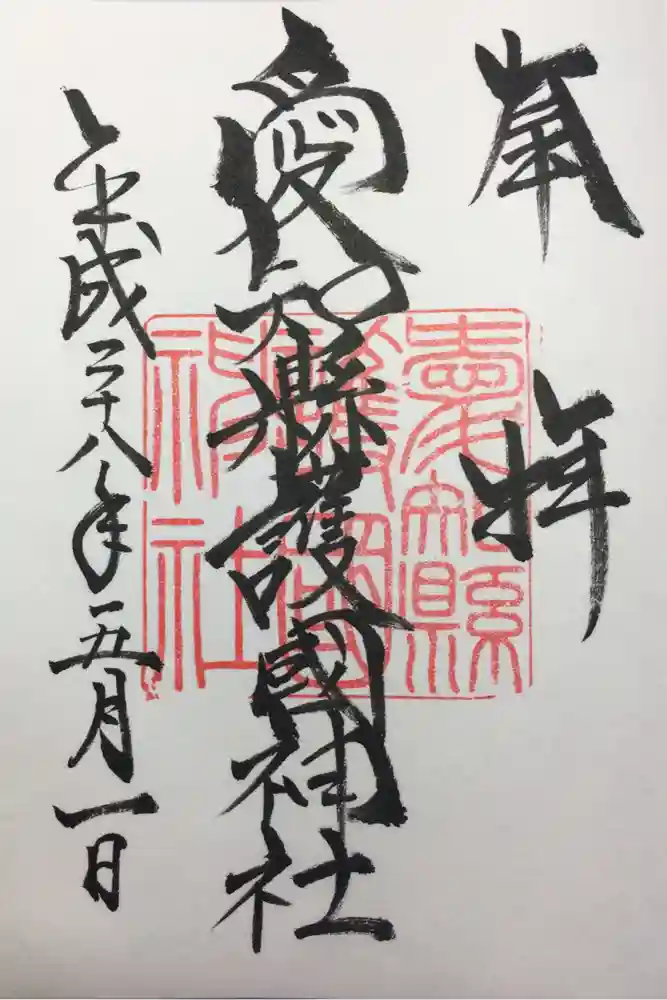 奉拝
愛知縣護國神社
平成二十八年五月一日
愛知縣
護國
神社